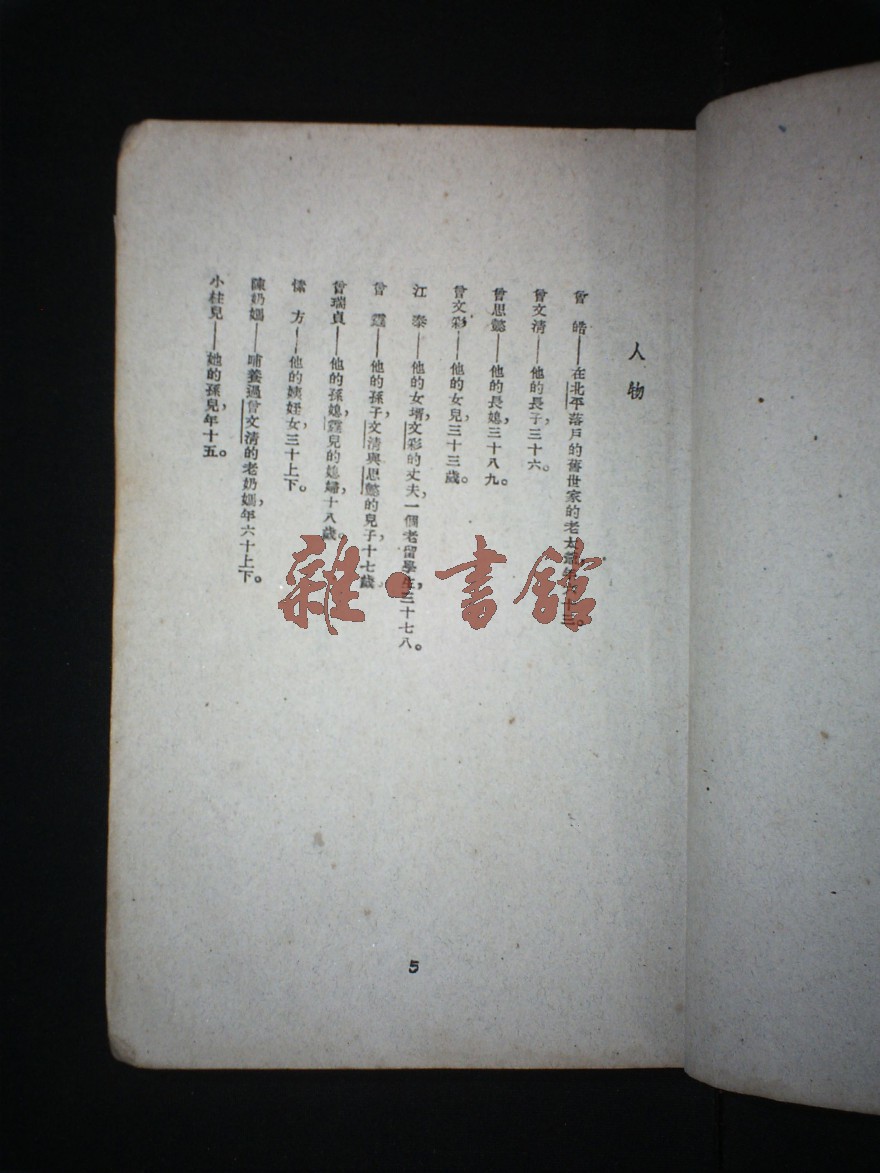 人物
曾 皓——在北平落戶的舊世家的老太爺，年六十三。
曾文清——他的長子，三十六。
曾思懿——他的長媳，三十八九。
曾文彩——他的女兒，三十三歲。
江 泰——他的女壻，文彩的丈夫，一個老留學生，三十七八。
曾 霆——他的孫子，文清與思懿的兒子，十七歲
曾瑞貞——他的孫媳，霆兒的媳婦，十八歲
愫 方——他的姨姪女，三十上下。
陳奶媽——哺養過曾文清的老奶媽，年六十上下。
小柱兒——她的孫兒，年十五。
5
雜·書館